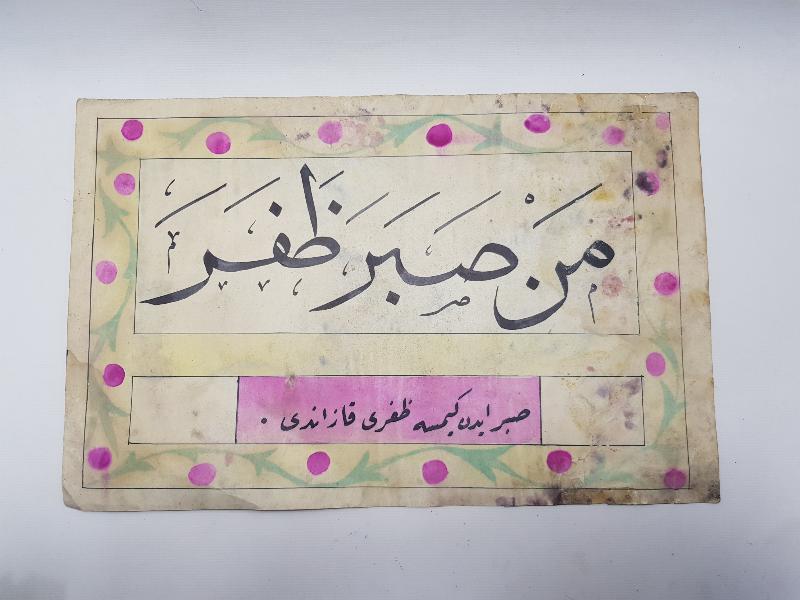 مَنْ صَبَرَ ظَفَرَ
صبر ایدن کیمسه ظفری قازاندی .